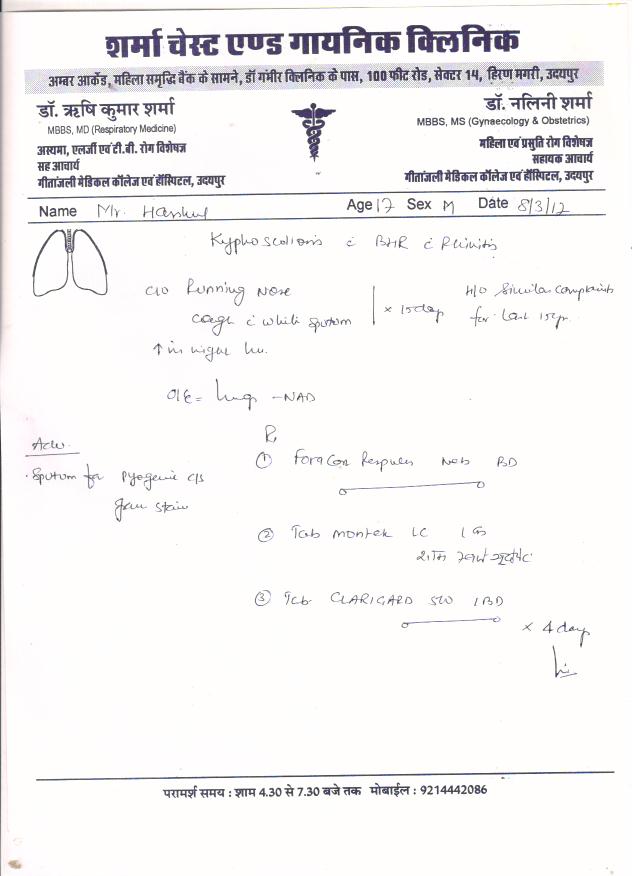 शर्मा चेस्ट एण्ड गायनिक क्लिनिक
अम्बर आर्केड, महिला समृद्धि बैंक के सामने, डॉ गंभीर क्लिनिक के पास, 100 फीट रोड, सेक्टर 14, हिरण मगरी, उदयपुर
डॉ. ऋषि कुमार शर्मा
MBBS, MD (Respiratory Medicine)
अस्थमा, एलर्जी एवं टी.बी. रोग विशेषज्ञ
सह आचार्य
गीतांजली मेडिकल कॉलेज एवं हॉस्पिटल, उदयपुर
डॉ. नलिनी शर्मा
MBBS, MS (Gynaecology & Obstetrics)
महिला एवं प्रसुति रोग विशेषज्ञ
सहायक आचार्य
गीतांजली मेडिकल कॉलेज एवं हॉस्पिटल, उदयपुर
Name Mr. Age 17 Sex M Date 8/3/12
Kyphoscoliosis c̄ BHR c̄ Rhinitis
C/O Running Nose
cough c̄ white sputum
↑ in night
x 15 day
H/O Similar complaints
for last 15 yr.
O/E = Lungs - NAD
Adv.
Sputum for Pyogenic c/s
Gram stain
Rx
① Foracort Respules Neb BD
② Tab Montek LC
③ Tab CLARIGARD 500 1 BD
x 4 day
परामर्श समय : शाम 4.30 से 7.30 बजे तक मोबाईल : 9214442086